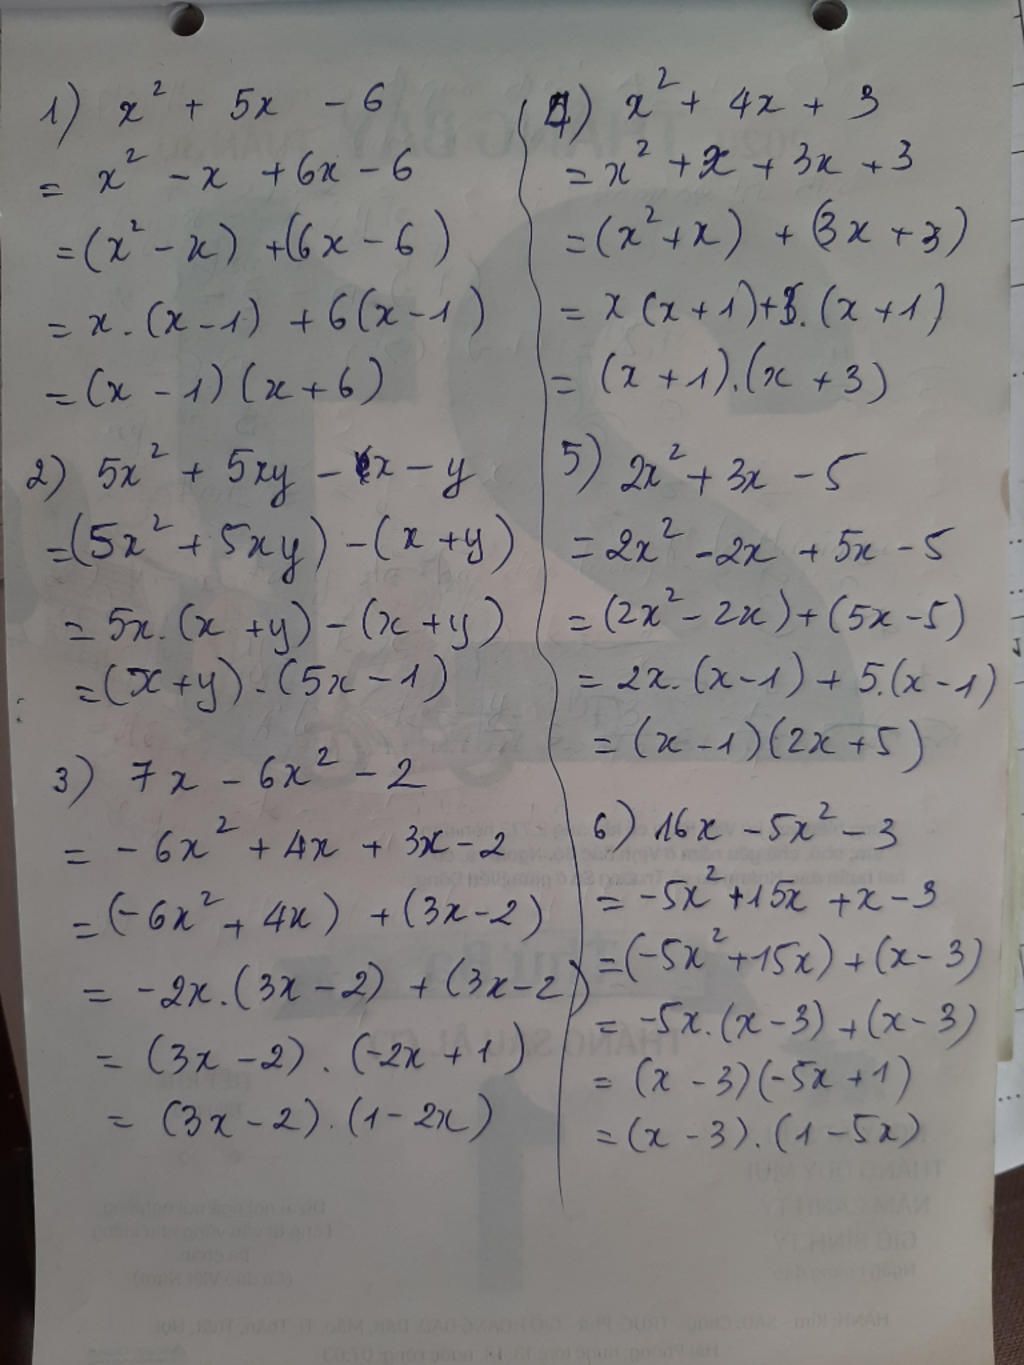 1) x² + 5x - 6
= x² - x + 6x - 6
= (x² - x) + (6x - 6)
= x.(x - 1) + 6(x - 1)
= (x - 1)(x + 6)
2) 5x² + 5xy - x - y
= (5x² + 5xy) - (x + y)
= 5x.(x + y) - (x + y)
= (x + y).(5x - 1)
3) 7x - 6x² - 2
= - 6x² + 4x + 3x - 2
= (-6x² + 4x) + (3x - 2)
= -2x.(3x - 2) + (3x - 2)
= (3x - 2).(-2x + 1)
= (3x - 2).(1 - 2x)
4) x² + 4x + 3
= x² + x + 3x + 3
= (x² + x) + (3x + 3)
= x(x + 1) + 3.(x + 1)
= (x + 1).(x + 3)
5) 2x² + 3x - 5
= 2x² - 2x + 5x - 5
= (2x² - 2x) + (5x - 5)
= 2x.(x - 1) + 5.(x - 1)
= (x - 1)(2x + 5)
6) 16x - 5x² - 3
= -5x² + 15x + x - 3
= (-5x² + 15x) + (x - 3)
= -5x.(x - 3) + (x - 3)
= (x - 3)(-5x + 1)
= (x - 3).(1 - 5x)